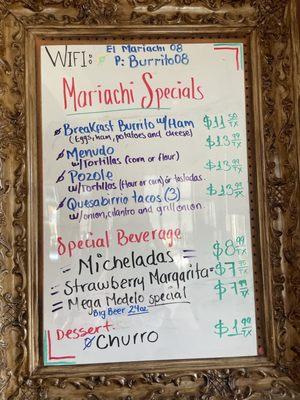 WIFI: El Mariachi 08
P: Burrito08
Mariachi Specials
Breakfast Burrito w/Ham $11.50 +TX
(Eggs, ham, potatoes and cheese)
Menudo $13.99 +TX
w/Tortillas (corn or flour)
Pozole $13.99 +TX
w/Tortillas (flour or corn) or tostadas.
Quesabirrio tacos (3) $13.99
w/onion, cilantro and grill onion.
Special Beverage
- Micheladas = $8.99
- Strawberry Margarita = $7.75 +TX
= Mega Modelo special $7.99 +TX
Big Beer 24oz
Dessert.
Churro $1.99 +TX